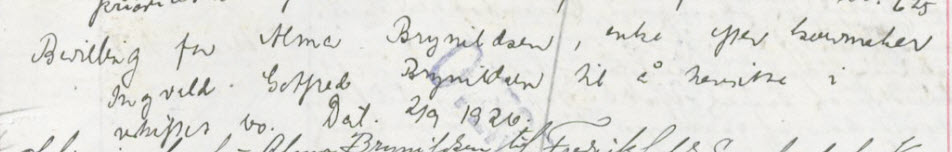 Bevilling for Alma Brynildsen, enke efter kurvmaker
Ingvald Gotfred Brynildsen til å hensitte i
uskiftet bo. Dat. 2/9 1926.
Alma Brynildsen til Fredrik